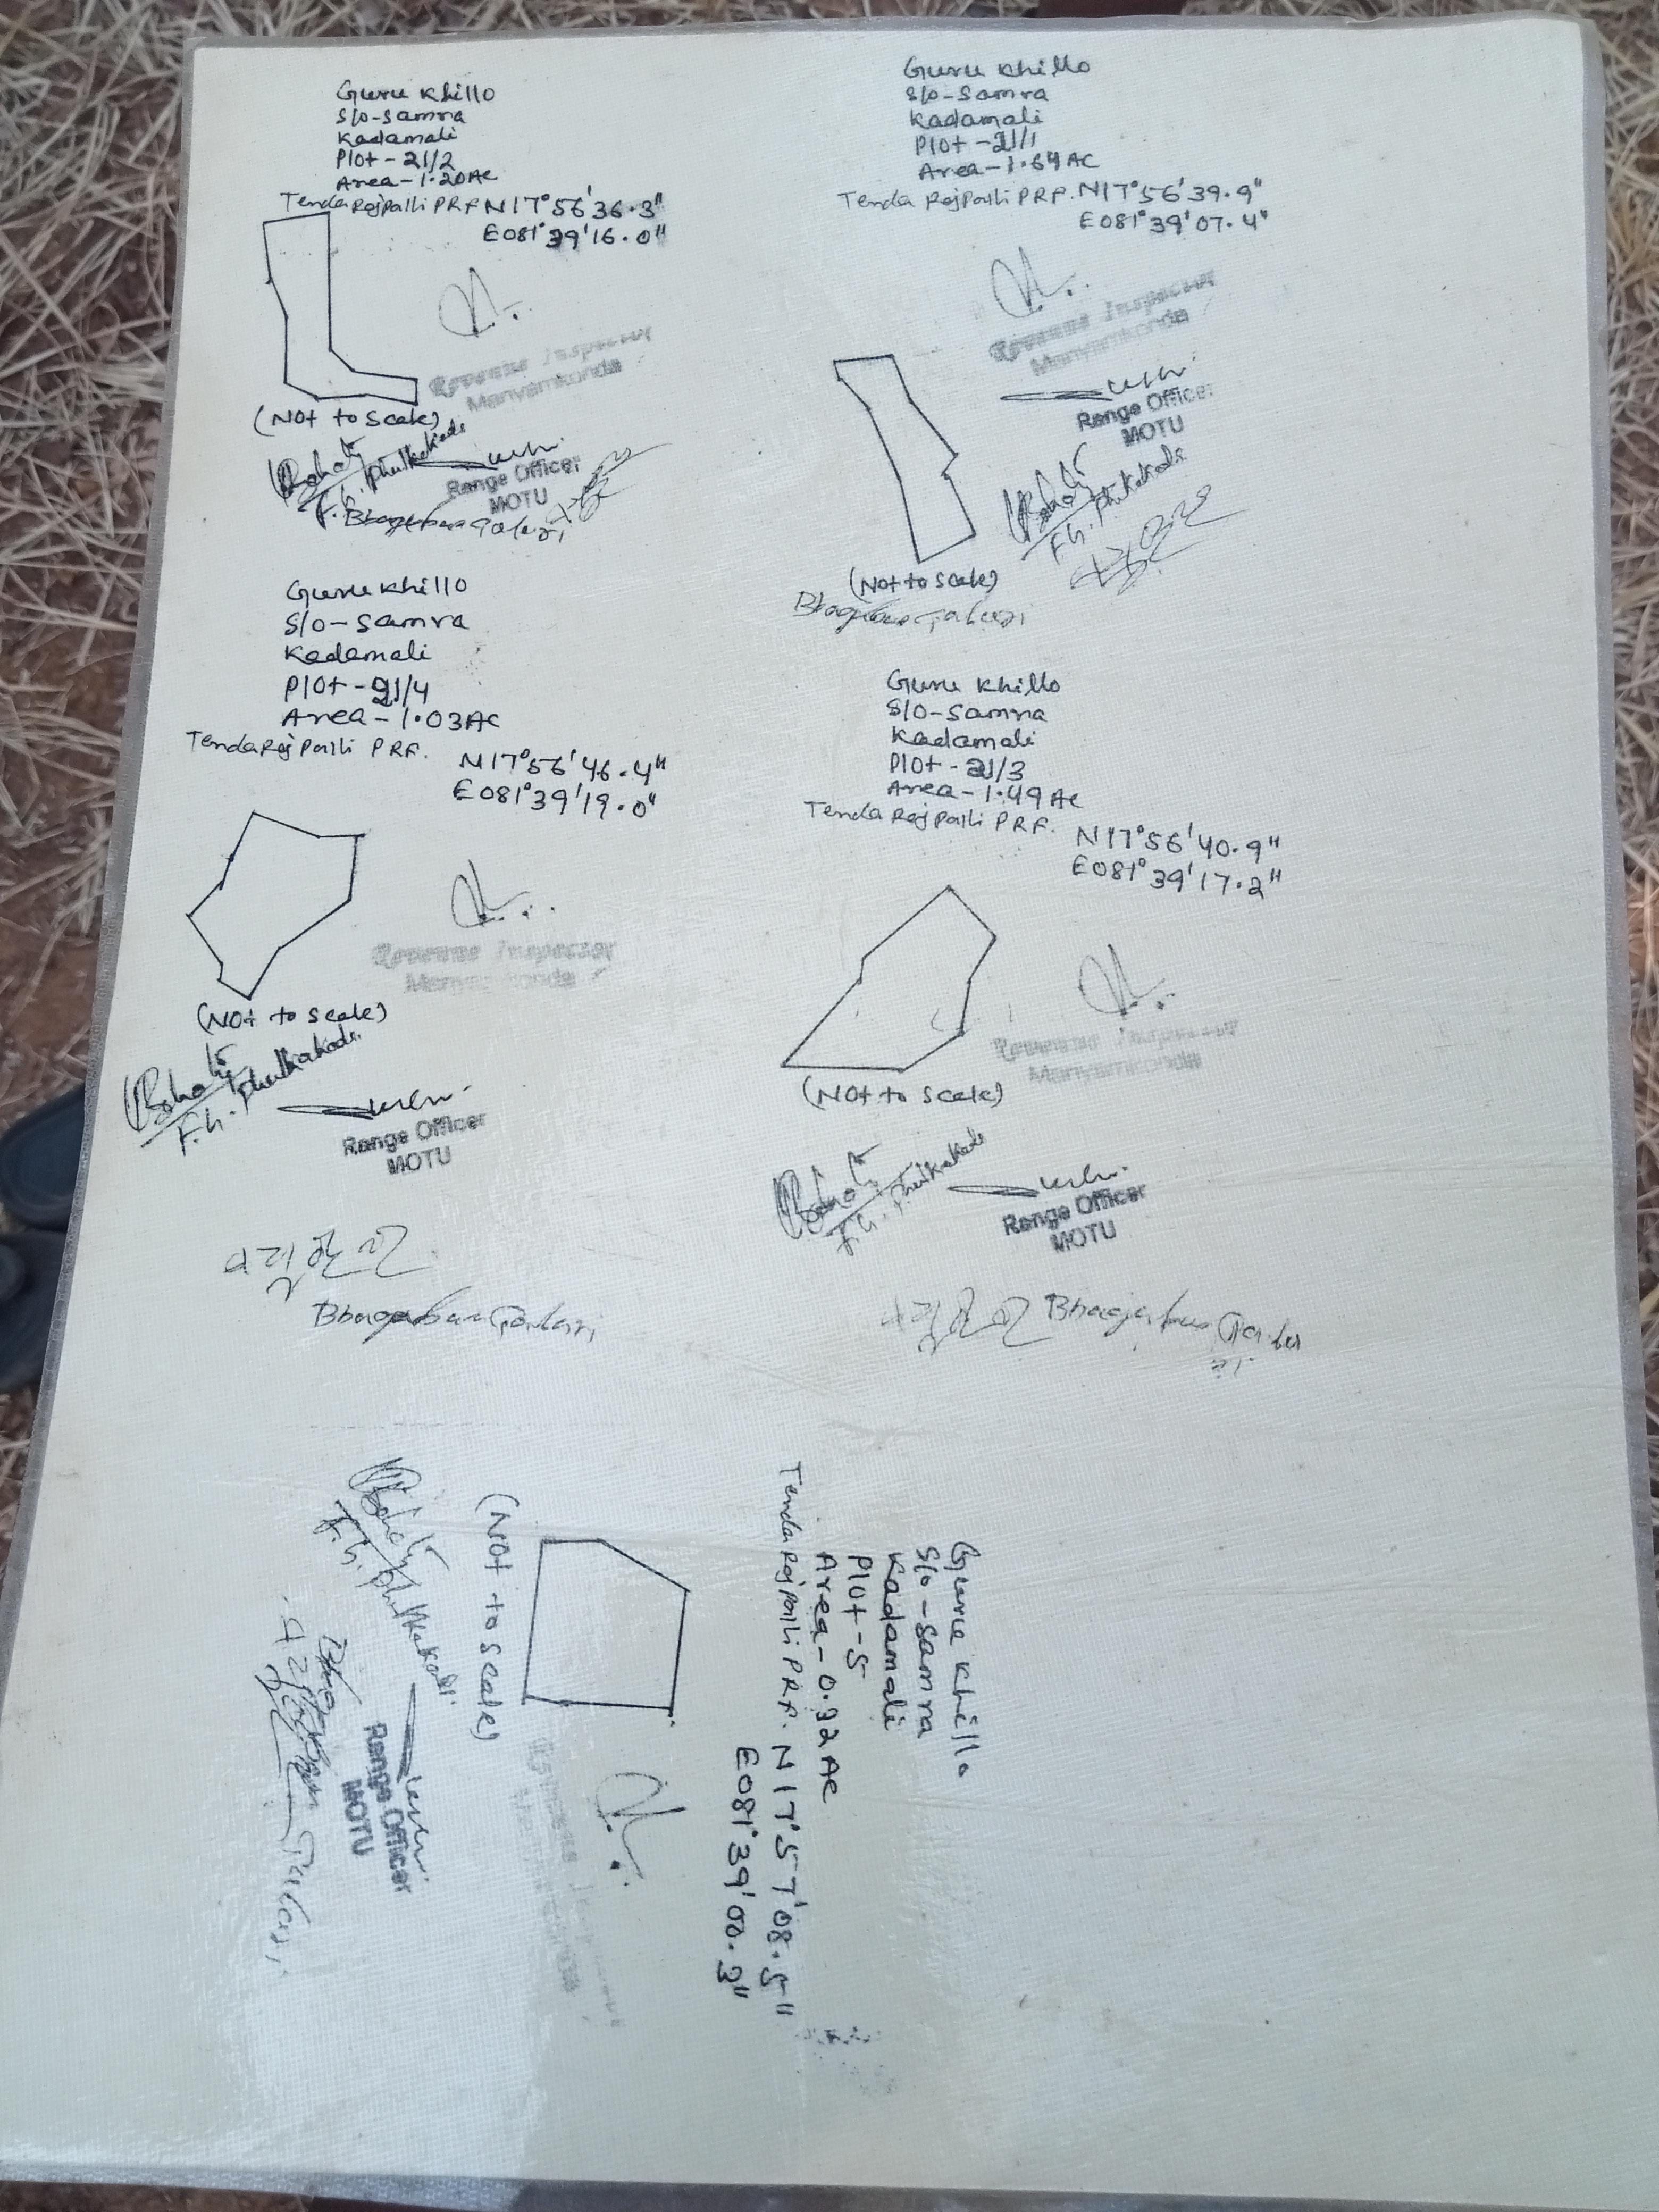 Guru Khillo
S/o-Samra
Kadamali
Plot - 21/2
Area - 1.20 Ac
Tenda Rajpalli PRF. N17°56'36.3"
E081°39'16.0"
Revenue Inspector
Manyamkonda
(Not to Scale)
Range Officer
MOTU
Guru Khillo
S/o-Samra
Kadamali
Plot - 21/1
Area - 1.64 AC
Tenda Rajpalli PRF. N17°56'39.9"
E081°39'07.4"
Revenue Inspector
Manyamkonda
Range Officer
MOTU
(Not to Scale)
Guru Khillo
S/o-Samra
Kadamali
Plot - 21/4
Area - 1.03 AC
Tenda Rajpalli PRF.
N17°56'46.4"
E081°39'19.0"
Revenue Inspector
Manyamkonda
(Not to Scale)
Range Officer
MOTU
Guru Khillo
S/o-Samra
Kadamali
Plot - 21/3
Area - 1.49 Ac
Tenda Rajpalli PRF.
N17°56'40.9"
E081°39'17.2"
Revenue Inspector
Manyamkonda
(Not to Scale)
Range Officer
MOTU
Guru Khillo
S/o-Samra
Kadamali
Plot - 5
Area - 0.92 Ac
Tenda Rajpalli PRF. N17°57'08.5"
E081°39'00.3"
(Not to Scale)
Range Officer
MOTU